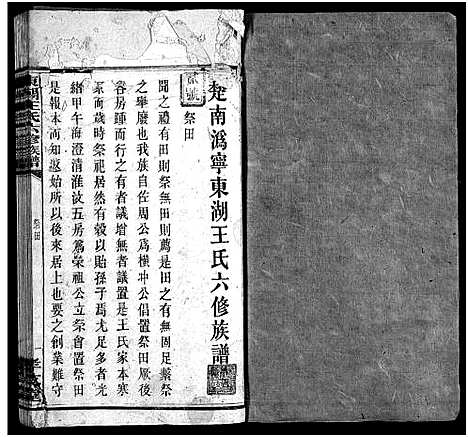 楚南溈寧東湖王氏六修族譜
祭田
聞之禮有田則祭無田則薦是田之有無固足繫祭
之舉廢也我族自佐周公為橫冲公倡置祭田厥後
各房踵而行之有者議增無者議置是王氏家本寒
素而歲時祭祀居然有穀以貽孫子焉尤足多者光
緒甲午海澄清淮放五房為榮祖公立祭會祭田
是報本而知返始所以後來居上也要之創業難守
東湖王氏六修族譜
祭田
一